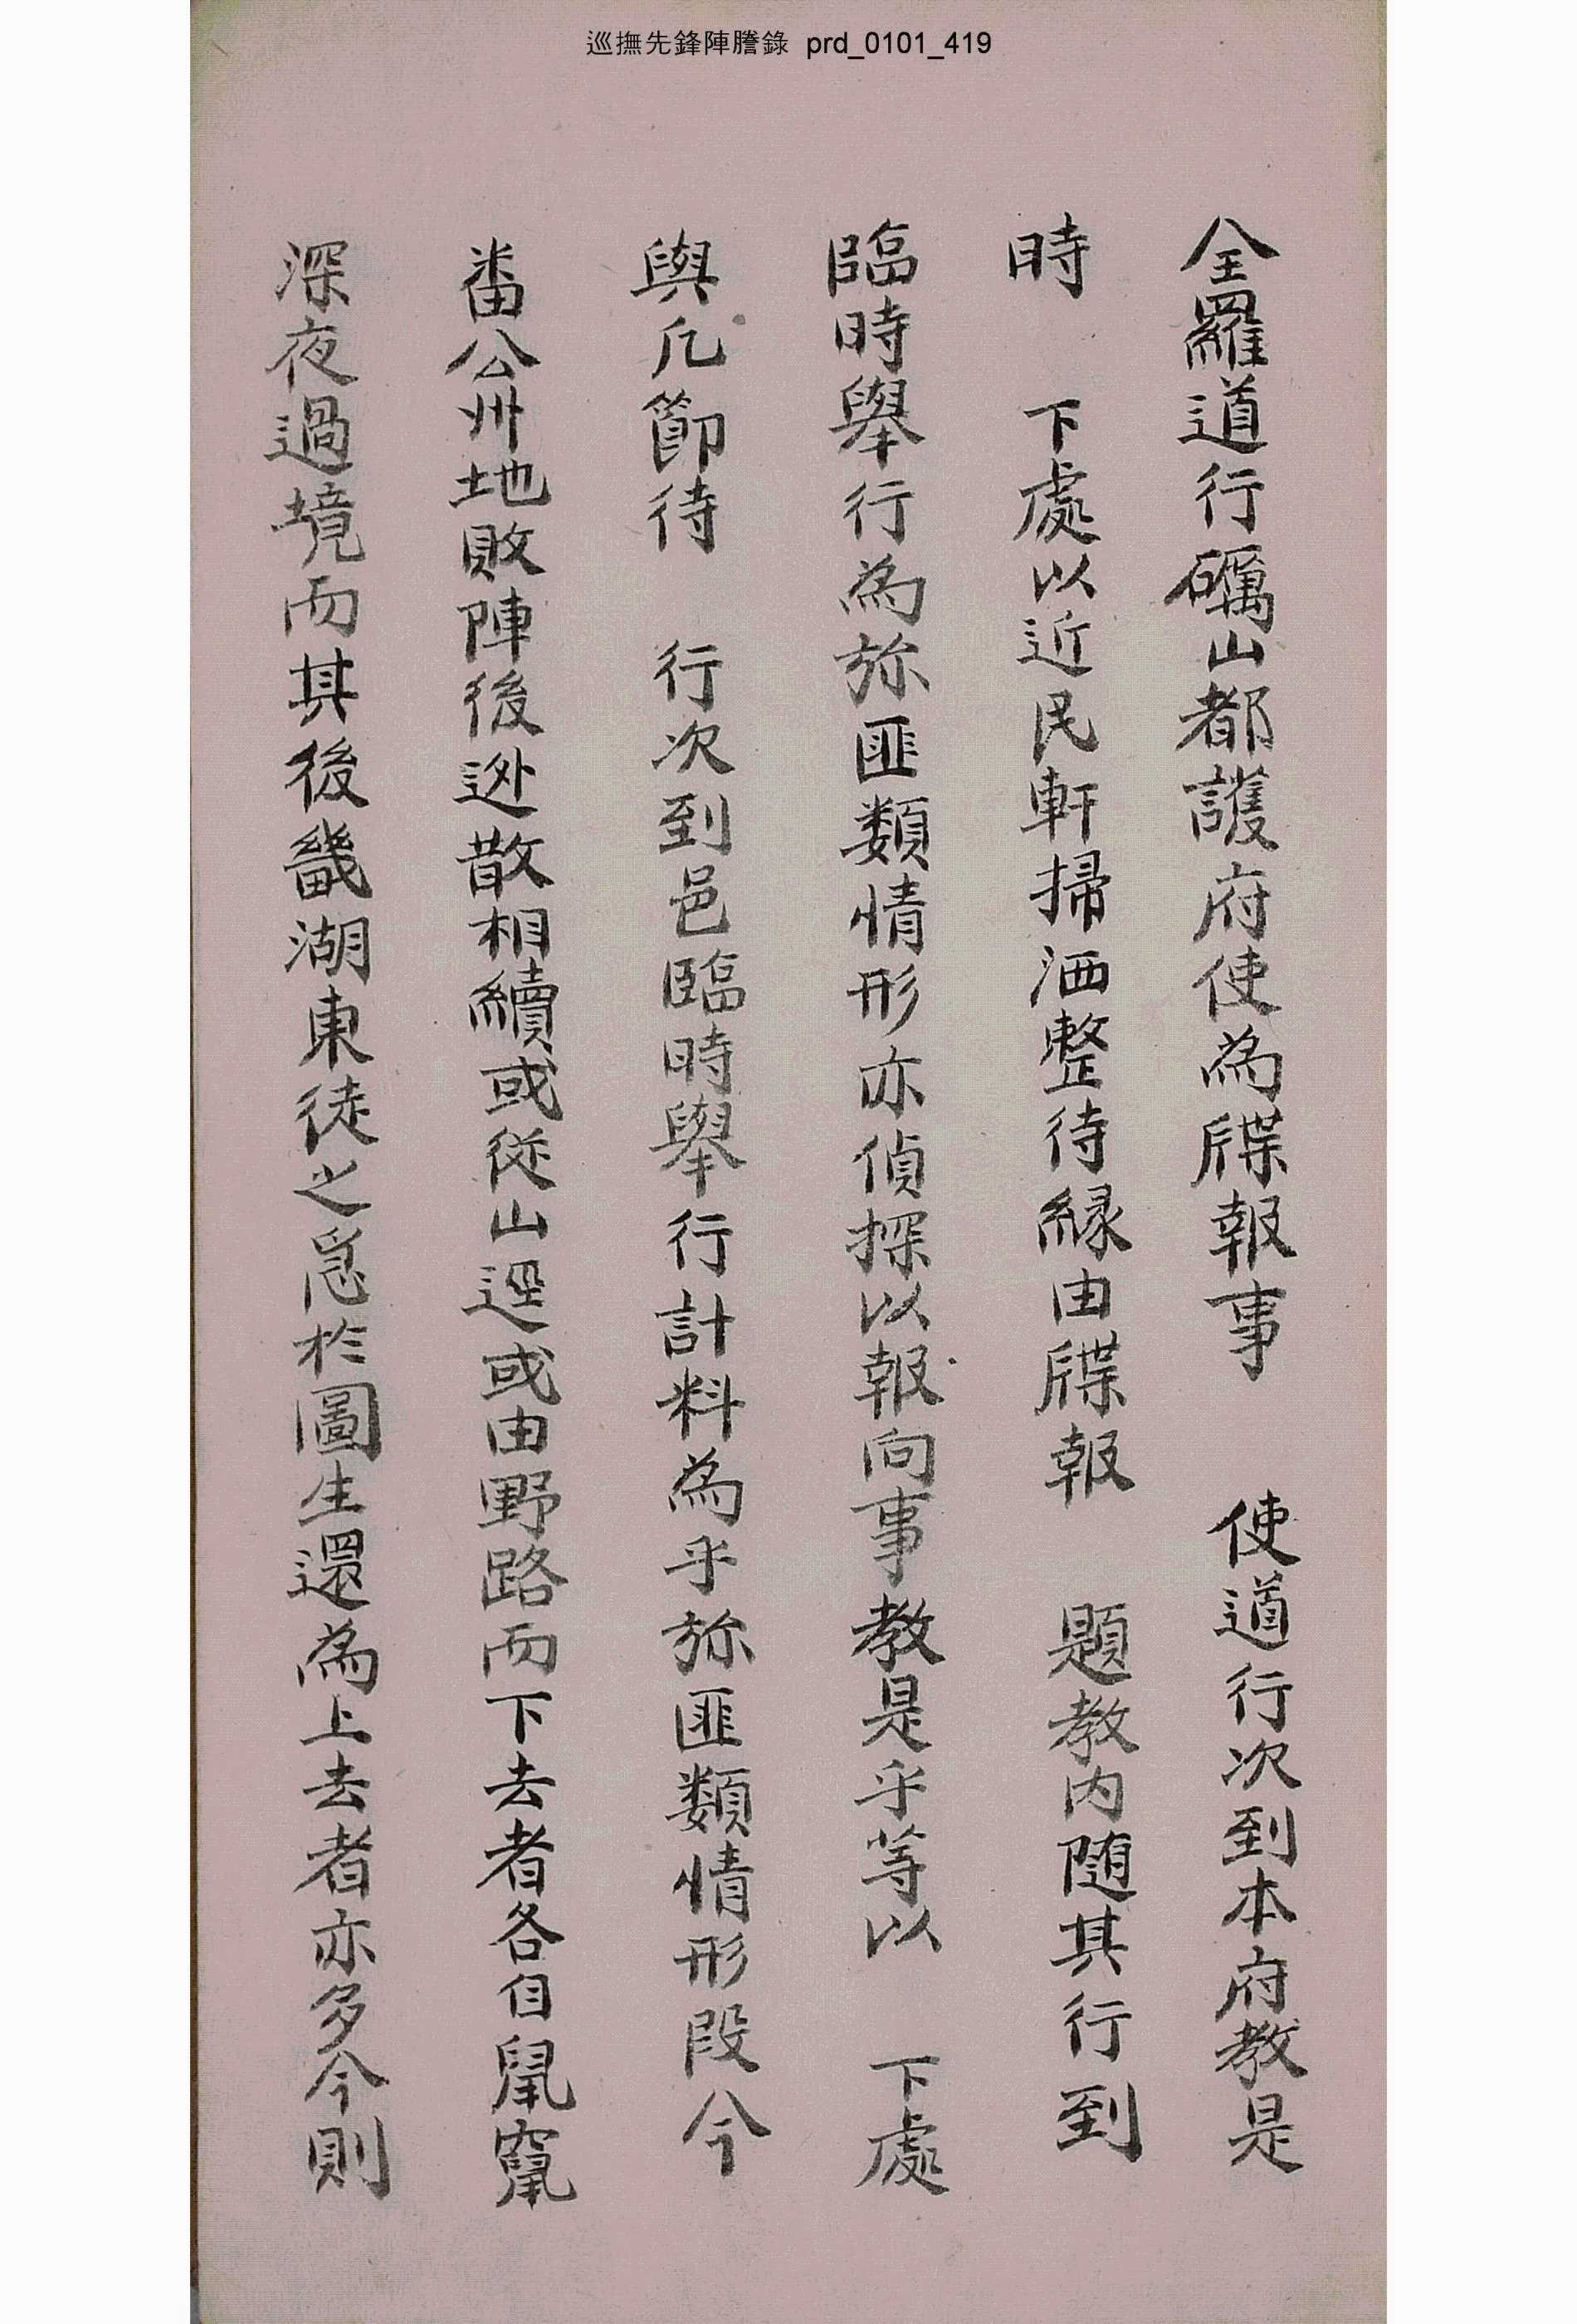 巡撫先鋒陣謄錄 prd_0101_419
全羅道行礪山都護府使為牒報事 使道行次到本府教是
時 下處以近民軒掃洒整待緣由牒報 題教內随其行到
臨時舉行為旀匪類情形亦偵探以報向事教是乎等以 下處
與凡節待 行次到邑臨時舉行計料為乎旀匪類情形段今
番公州地敗陣後迯散相續或從山逕或由野路而下去者各自鼠竄
深夜過境而其後畿湖東徒之急於圖生還為上去者亦多今則